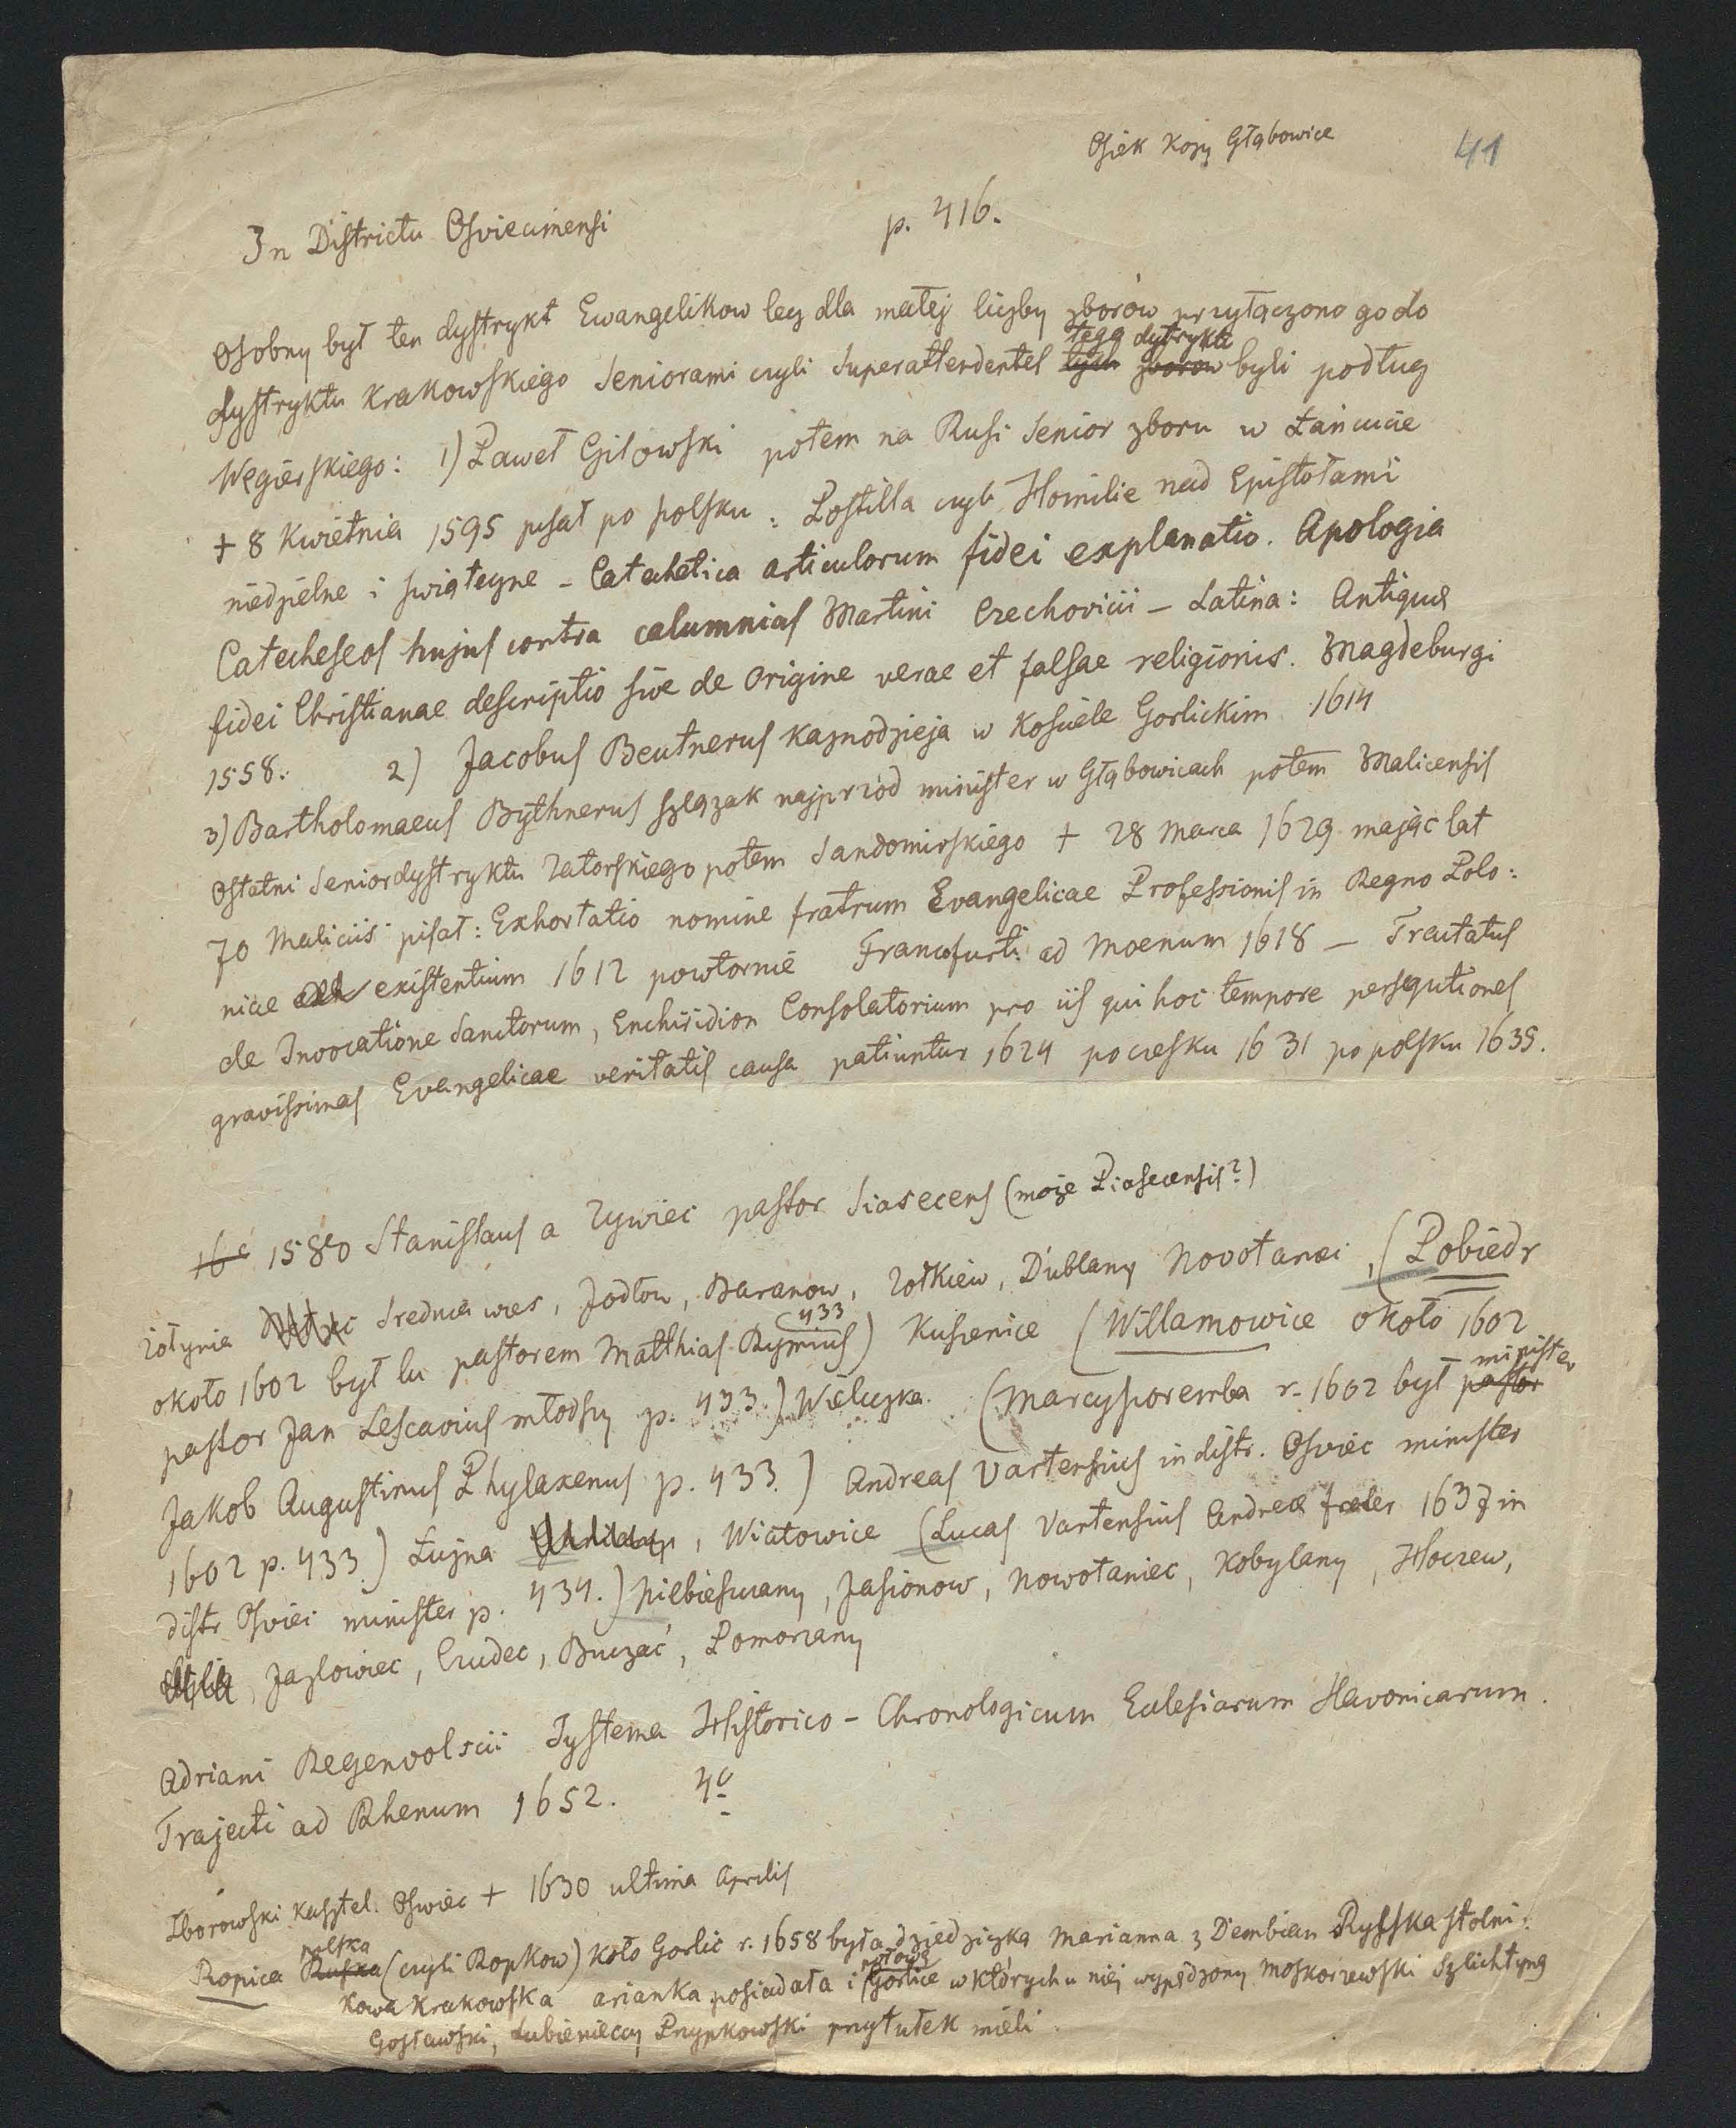 Osiek Kozy Głąbowice
41
In Districtu Osviecimensi p. 416.
Osobny był ten dystrykt Ewangelikow lecz dla małej liczby zborów przyłączono go do
tego dytryktu
dystryktu Krakowskiego Seniorami czyli Superattendentes tych zborow byli podług
Węgierskiego: 1) Paweł Gilowski potem na Rusi Senior zboru w Łańcucie
+ 8 Kwietnia 1595 pisał po polsku: Postilla czyli Homilie nad Epistołami
niedzielne i swiąteczne - Catechetica articulorum fidei explanatio. Apologia
Catecheseos hujus contra calumnias Martini Czechovicii - Latina: Antiquae
fidei Christianae descriptio sive de Origine verae et falsae religionis. Magdeburgi
1558. 2) Jacobus Beutnerus Kaznodzieja w Kosciele Gorlickim 1614
3) Bartholomaeus Bythnerus szlązak najprzód minister w Głąbowicach potem Malicensis
Ostatni Senior dystryktu Zatorskiego potem Sandomirskiego + 28 Marca 1629 mając lat
70 Maliciis pisał: Exhortatio nomine fratrum Evangelicae Professionis in Regno Polo:
niae existentium 1612 powtornie Francofurti ad Moenum 1618 - Tractatus
de Invocatione Sanctorum, Enchiridion Consolatorium pro iis qui hoc tempore persequtiones
gravissimas Evangelicae veritatis causa patiuntur 1624 po czesku 1631 po polsku 1635.
16 1580 Stanislaus a Zywiec pastor Siasecens (może Piasecensis?)
Zołynia Srednia wies, Jodłow, Baranow, Zołkiew, Dublany Novotanci, (Pobiedr
433
około 1602 był tu pastorem Matthias Rymius) Kusienice (Willamowice około 1602
minister
pastor Jan Lescavius młodszy p. 433.) Wieliczka. (Marcyporemba r. 1602 był pastor
Jakob Augustinus Phylaxenus p. 433.) Andreas Vartensius in distr. Osviec minister
1602 p. 433.) Łużna, Wiatowice (Lucas Vartensius Andreae frater 1637 in
distr. Osviec minister p. 434.) Niebieszczany, Jasionow, Nowotaniec, Kobylany, Hoczew,
Jazlowiec, Czudec, Buczać, Pomorzany
Adriani Regenvolscii Systema Historico-Chronologicum Ecclesiarum Slavonicarum.
Trajecti ad Rhenum 1652. 4o
Zborowski kasztel. Oswiec + 1630 ultima Aprilis
polska
Ropica Ruska (czyli Ropkow) koło Gorlic r. 1658 była dziedziczka Marianna z Dembian Rysska stolni:
połowę
kowa Krakowska arianka posiadała i Gorlice w których u niej wypędzony Moskorzewski Szlichtyng
Gosławski, Lubienieccy Przypkowski przytułek mieli.